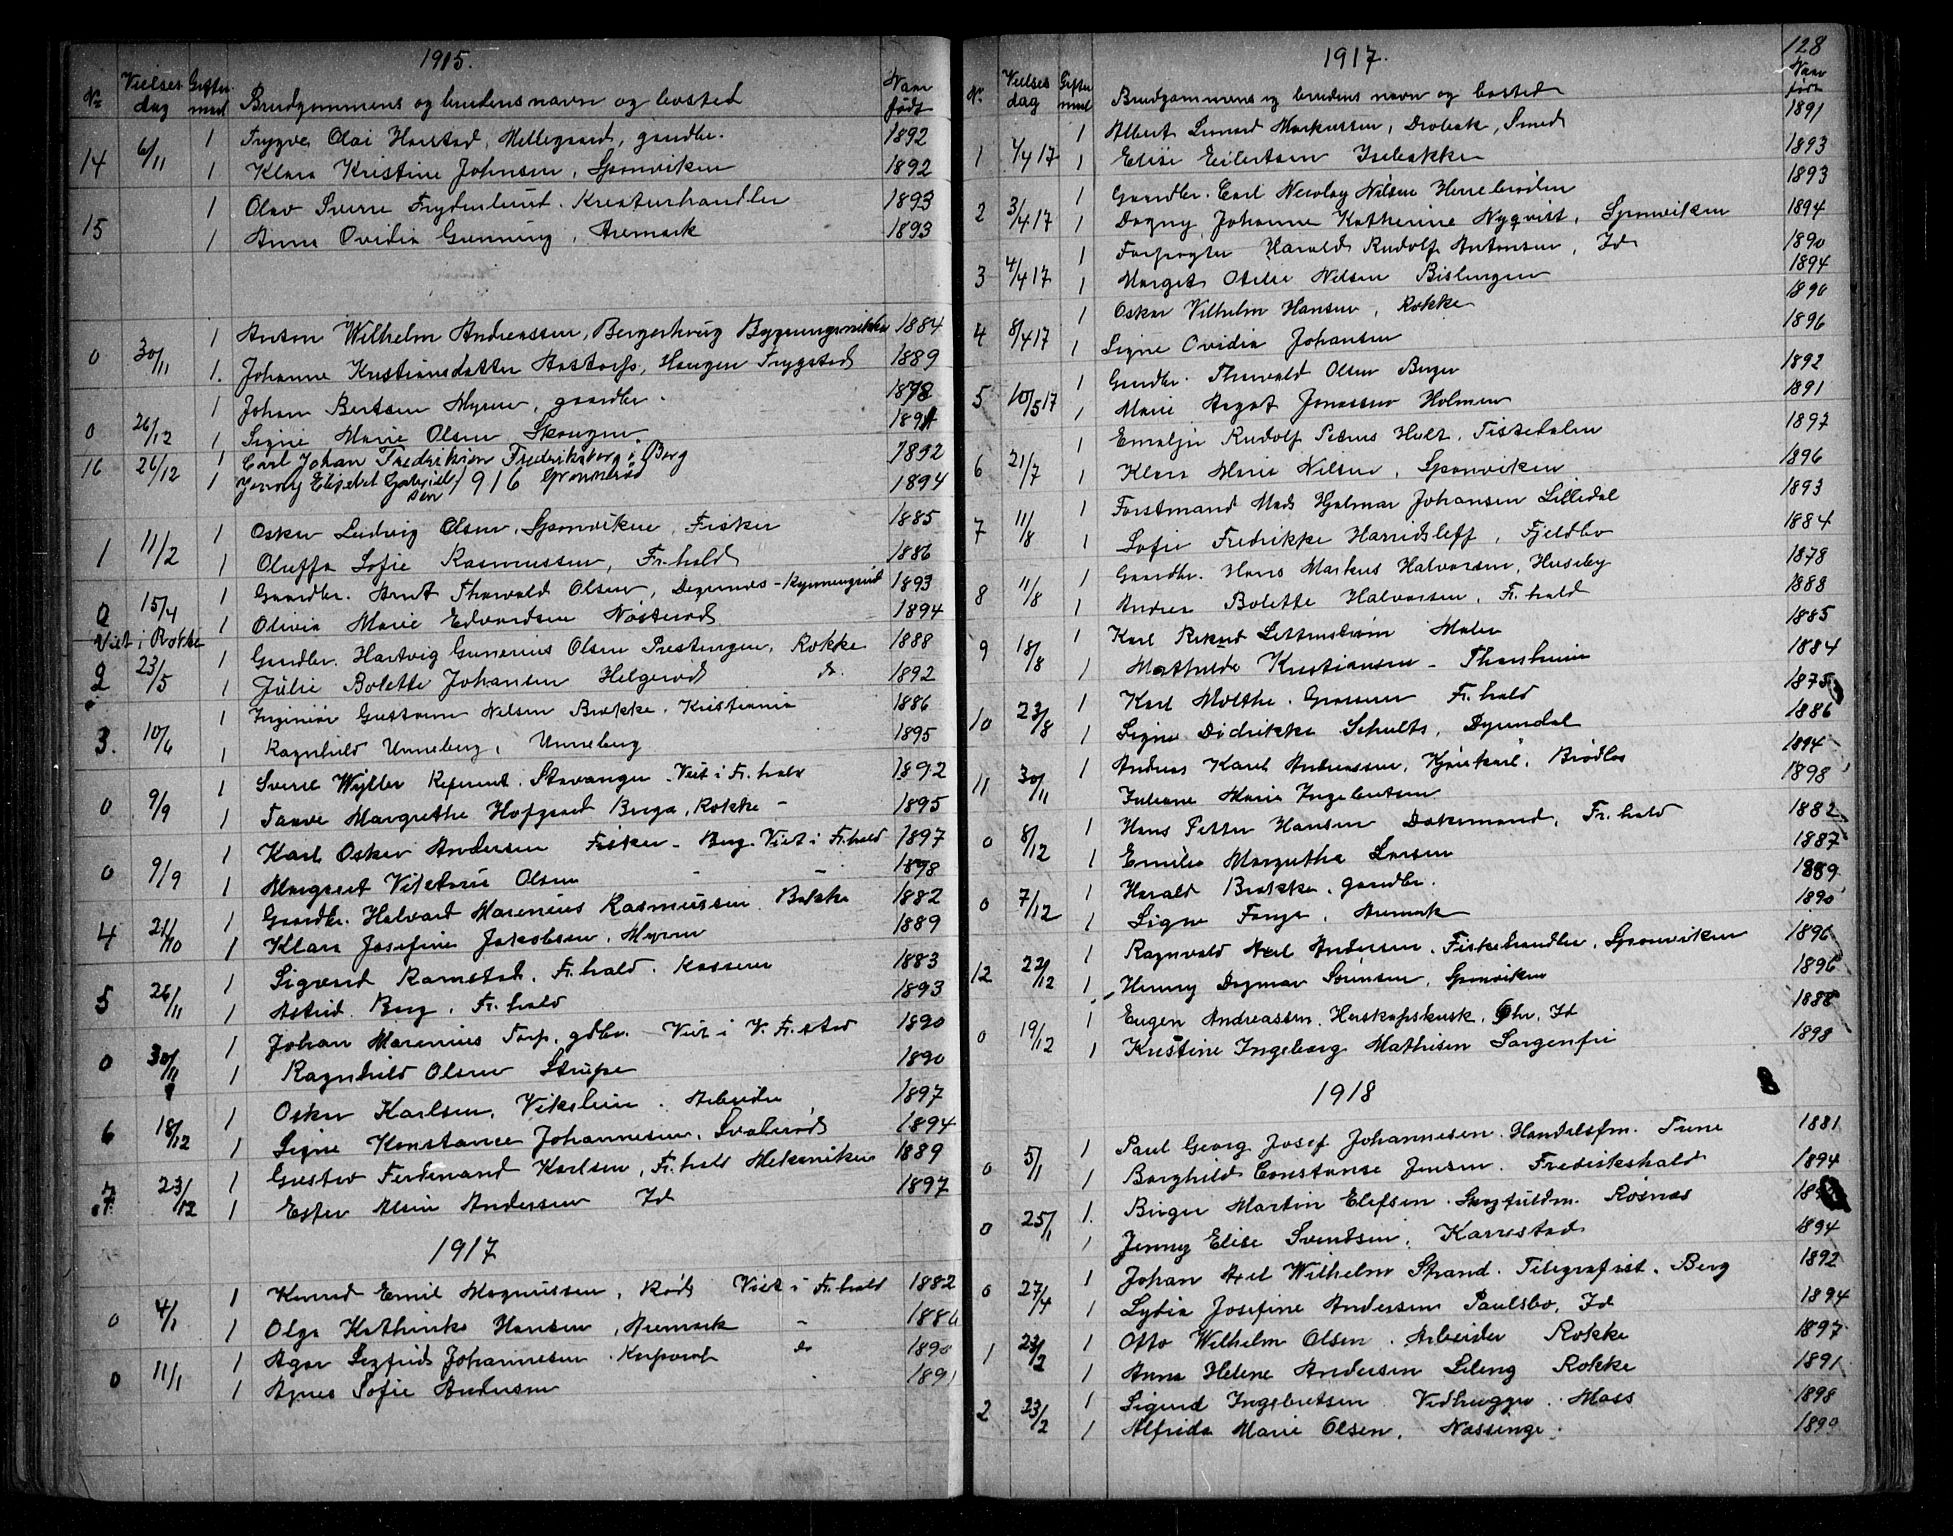 1915.
Nr Vielses dag Gifter med Brudgommens og brudens navn og bosted Naar født
14 6/11 1 Trygve Olai Harstad, Hellegaard, gaardbr. 1892
1 Klara Kristine Johnsen, Sponviken 1892
15 1 Olav Sverre Frydenlund. Kreaturhandler 1893
1 Anna Ovidia Grenning, Aremark 1893
0 30/11 1 Anton Wilhelm Andreassen, Bergerkrug Bygningssnikker 1884
1. Johanne Kristiansdatter Aastorp, Haugen Trygstad 1889
0 26/12 1 Johan Bertsen Myrer, gaardbr. 1878
1 Signe Marie Olsen Skaugen. 1891
16 26/12 1 Carl Johan Fredriksen Fredriksborg i Berg 1892
1 Jenny Elisabet Gabrielsen Grønnerød 1894
1916
1 11/2 1 Oskar Ludvig Olsen, Sponviken, Fisker 1885
1 Oluffa Sofie Rasmussen, Fr.hald 1886
0 15/4 1 Gaardbr. Arnt Thorvald Olsen, Degernes - Kynnengrind 1893
1 Olivia Marie Edvardsen Nøsterød 1894
Viet i Rokke
2 23/5 1 Gardbr. Hartvig Gunerius Olsen Prestengen, Rokke 1888
1 Julie Bolette Johansen Helgerød do. 1892
3. 10/6 1 Ingeniør Gustav Nilsen Brække. Kristiania 1886
1 Ragnhild Unneberg, Unneberg 1895
0 9/9 1 Sverre Wyller Referent. Stavanger. Viet i Fr.hald 1892
1 Taave Margrethe Hofgaard Berga, Rokke - 1895
0 9/9 1 Karl Oskar Andersen Fisker - Berg. Viet i Fr.hald 1897
1 Margaret Viktoria Olsen - - 1898
4 21/10 1 Gaardbr. Halvard Marenius Rasmussen Bakke 1882
1 Klara Josefine Jakobsen, Myrer 1889
5 26/11 1 Sigurd Ramstad. Fr.hald. Kasserer 1883
1 Astrid Berg. Fr.hald 1893
0 30/11 1 Johan Marenius Torp, gdbr. Viet i V. Fr.stad 1890
1 Ragnhild Olsen Strupe 1890
6 18/12 1 Oskar Karlsen, Vikslien. Arbeider 1897
1 Signe Konstance Johannesen, Svalerød 1894
7. 23/12 1 Gustav Ferdinand Karlsen, Fr.hald Mekaniker 1889
1 Ester Alvin Andersen Id 1897
1917
0 4/1 1 Konrad Emil Magnussen, Rød Viet i Fr.hald 1882
1 Olga Kathinka Hansen, Aremark - 1886
0 11/1 1 Agar Sigfrid Johannesen. Korporal do 1890
1 Agnes Sofie Andersen 1891
128
1917.
Nr. Vielses dag Gifter med Brudgommens og brudens navn og bosted Naar født
1 1/4 17 1 Albert Leonard Markussen, Drøbak, Smed 1891
1 Elise Eilertsen Isebakke 1893
2 3/4 17 1 Gaardbr. Carl Nicolay Nilsen Herrebrøden 1893
1 Dagny Johanne Katherine Nyqvist, Sponviken 1894
3 4/4 17 1 Forpagter Harald Rudolf Antonsen, Id 1890
1 Margit Otilie Nilsen Bislingen 1894
4 8/4 17 1 Oskar Vilhelm Hansen, Rokke 1890
1 Signe Ovidia Johansen 1896
5 10/5 17 1 Gardbr. Thorvald Olsen Berger 1892
1 Marie Aagot Jonassen Holmen 1891
6 21/7 1 Emaljør Rudolf Petrus Hult. Tistedalen 1897
1 Klara Marie Nilsen, Sponviken 1896
7 11/8 1 Forstmand Mads Hjalmar Johansen Lilledal 1893
1 Sofie Fredrikke Haridsleff, Fjeldbo 1884
8 11/8 1 Gaardbr. Hans Markus Halvorsen, Huseby 1878
1 Andrea Bolette Halvorsen, Fr.hald 1888
9 18/8 1 Karl Rikard Lettenstrøm Maler 1885
1 Mathilde Kristiansen - Thorsheim 1884
10 23/8 1 Karl Molthe. Grossern Fr.hald 1875
1 Signe Didrikke Schultz, Dyrendal 1886
11 30/11 1 Andreas Karel Andreassen, Brødløs 1894
1 Juliane Marie Ingebretsen 1898
0 8/12 1 Hans Petter Hansen Dokmand, Fr.hald 1882
1 Emilie Margretha Larsen 1887
0 7/12 1 Harald Brække, gardbr. 1889
1 Signe Tange, Aremark 1890
12 22/12 1 Ragnvald Axel Andersen, Fiskehandler, Sponviken 1896
1 Henny Dagmar Sørensen, Sponviken 1896
0 19/12 1 Eugen Andreassen, Herskapskusk, Id 1888
1 Kristine Ingeborg Mathisen Sorgenfri 1898
1918
0 5/1 1 Paul Georg Josef Johannesen. Handelsfm. Tune 1881
1 Borghild Constanse Jensen. Fredrikshald 1894
0 25/1 1. Birger Martin Elefsen. Røsnæs
1 Jenny Elise Svendsen, Karrestad 1894
0 27/4 1 Johan Axel Wilhelm Strand. Telegrafist. Berg 1892
1 Lydia Josefine Andersen Paulsbo, Id 1894
1 23/2 1 Otto Wilhelm Olsen. Arbeider Rokke 1897
1 Anna Helene Andersen Lileng Rokke 1891
2 23/2 1 Sigurd Ingebretsen Vedhugger. Moss 1898
1 Alfrida Marie Olsen, Næssinge. 1899